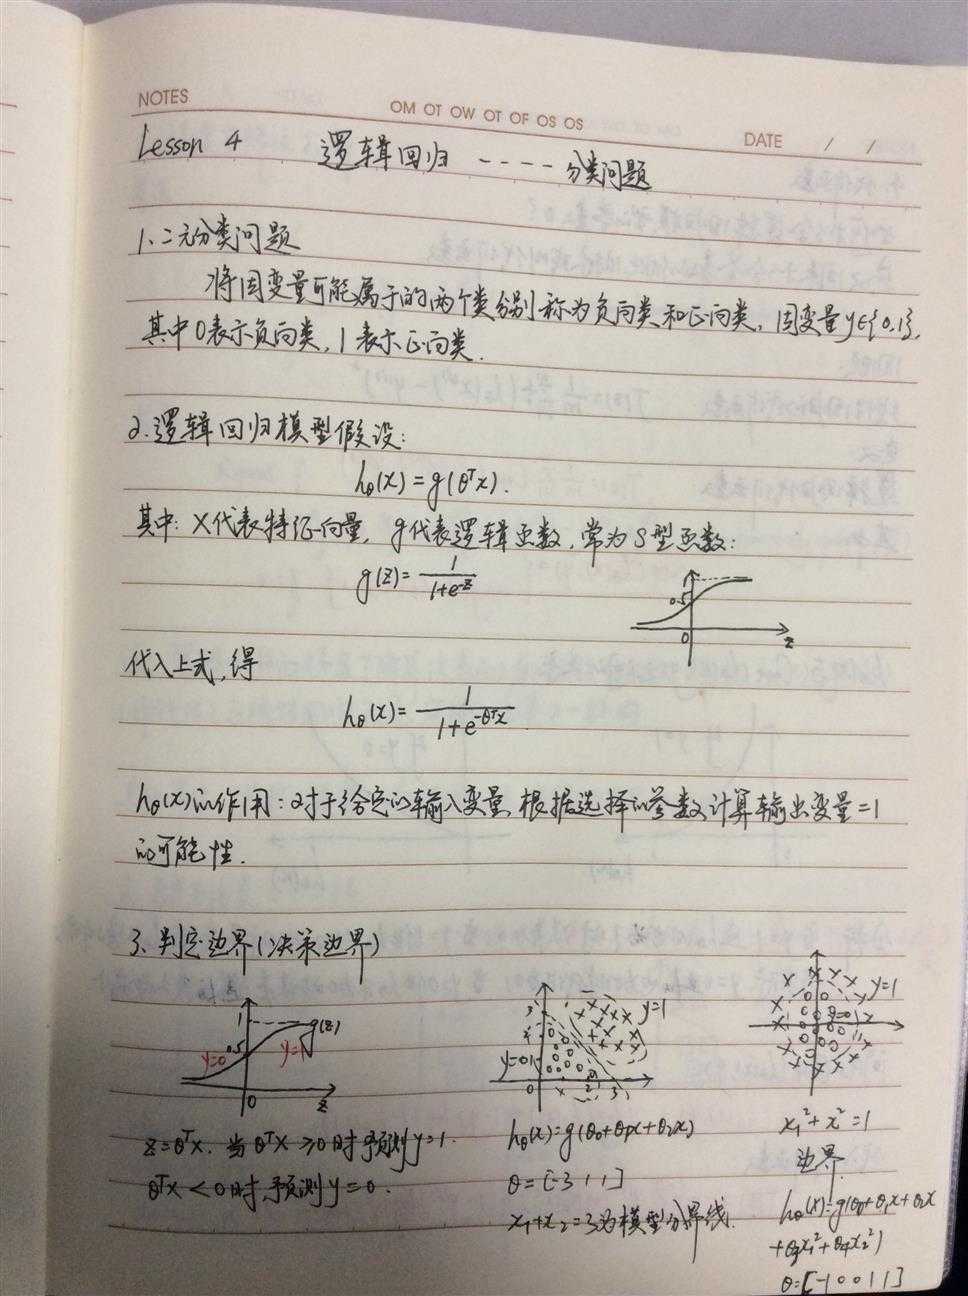 NOTES
OM OT OW OT OF OS OS
DATE / /
Lesson 4 逻辑回归 ---- 分类问题
1、二元分类问题
将因变量可能属于的两个类分别称为负向类和正向类，因变量y∈{0,1},
其中0表示负向类，1表示正向类.
2.逻辑回归模型假设：
hθ(x)=g(θᵀx).
其中：X代表特征向量，g代表逻辑函数，常为S型函数：
g(z)=1/(1+e^-z)
0.5
0
z
代入上式，得
hθ(x)=1/(1+e^-θᵀx)
hθ(x)的作用：对于给定的输入变量，根据选择的参数计算输出变量=1
的可能性.
3、判定边界(决策边界)
1
g(z)
0.5
y=0
y=1
0
z
z=θᵀx. 当θᵀx≥0时预测y=1.
θᵀx<0时，预测y=0.
3
2
1
y=1
y=0
0
1 2 3
hθ(x)=g(θ0+θ1x+θ2x)
θ=[-3 1 1]
x₁+x₂=3为模型分界线.
y=1
y=0
x₁²+x²=1
边界.
hθ(x)=g(θ0+θ1x+θ2x
+θ3x₁²+θ4x₂²)
θ=[-1 0 0 1 1]